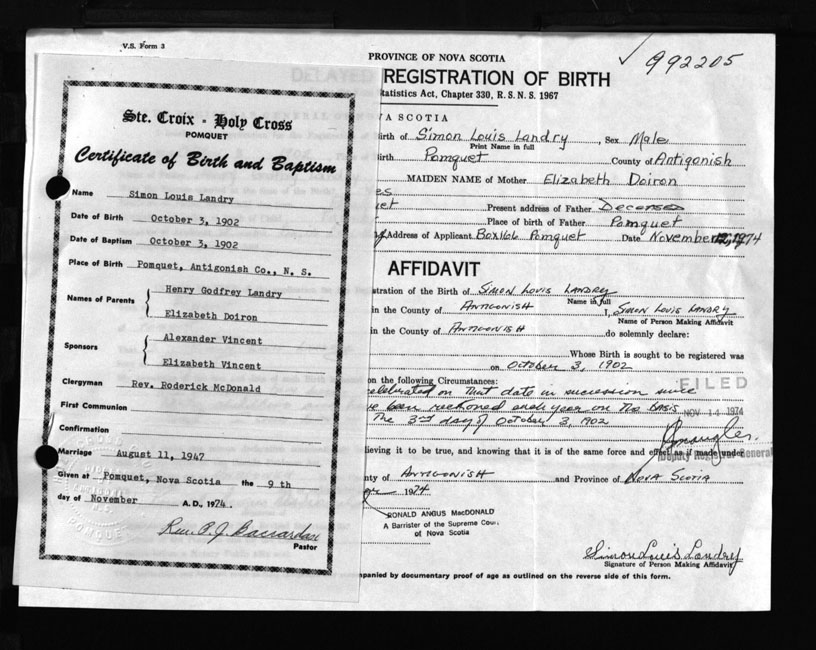 V.S. Form 3
992205
PROVINCE OF NOVA SCOTIA
DELAYED REGISTRATION OF BIRTH
tatistics Act, Chapter 330, R. S. N. S. 1967
Ste. Croix - Holy Cross
POMQUET
Certificate of Birth and Baptism
Name Simon Louis Landry
Date of Birth October 3, 1902
Date of Baptism October 3, 1902
Place of Birth Pomquet, Antigonish Co., N. S.
Names of Parents Henry Godfrey Landry
Elizabeth Doiron
Sponsors Alexander Vincent
Elizabeth Vincent
Clergyman Rev. Roderick McDonald
First Communion
Confirmation
Marriage August 11, 1947
Given at Pomquet, Nova Scotia the 9 th
day of November A.D., 1974.
Rev. P. J.
Pastor
VA SCOTIA
irth of Simon Louis Landry, Sex Male
Print Name in full
irth Pomquet County of Antigonish
MAIDEN NAME of Mother Elizabeth Doiron
es
et Present address of Father Deceased
Place of birth of Father Pomquet
Address of Applicant Box 166 Pomquet Date November 1974
AFFIDAVIT
stration of the Birth of SIMON LOUIS LANDRY
Name in full
in the County of ANTIGONISH I, SIMON LOUIS LANDRY
Name of Person Making Affidavit
in the County of ANTIGONISH do solemnly declare:
Whose Birth is sought to be registered was
on October 3, 1902
on the following Circumstances:
FILED
celebrated on that date in succession since
been reckoned each year on the BASIS
NOV 14 1974
The 3rd day of October 3, 1902
Deputy General
lieving it to be true, and knowing that it is of the same force and effect as if made under
nty of ANTIGONISH and Province of NOVA SCOTIA
1974
RONALD ANGUS MacDONALD
A Barrister of the Supreme Cou
of Nova Scotia
Simon Louis Landry
Signature of Person Making Affidavit
panied by documentary proof of age as outlined on the reverse side of this form.